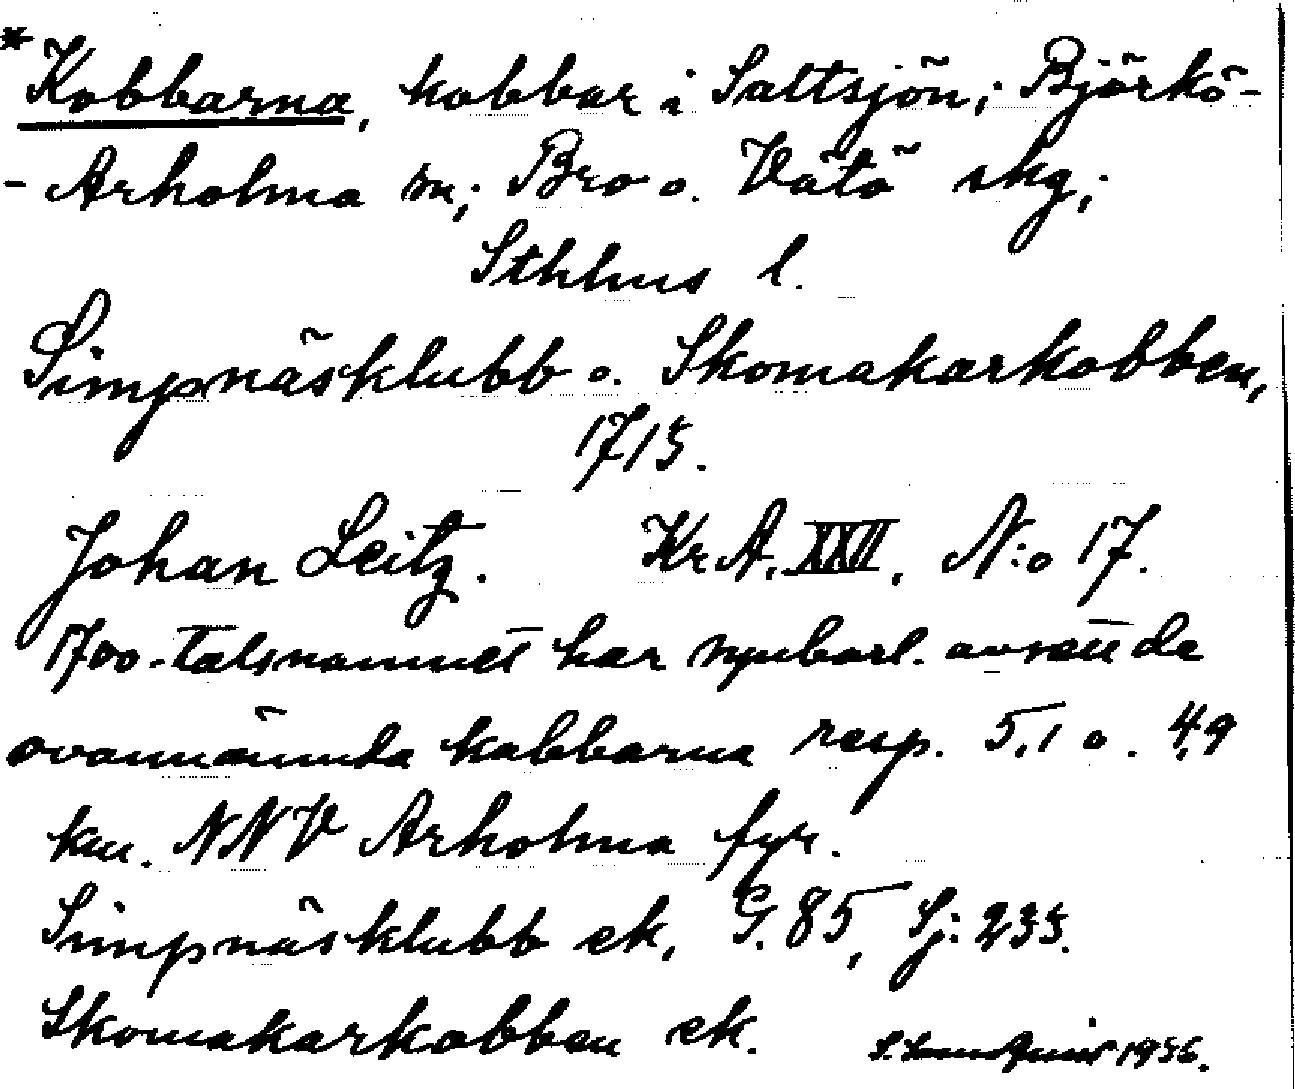 *Kobbarna, kobbar i Saltsjön; Björkö-
- Arholma sn; Bro o. Vätö skg;
Sthlms l.
Simpnäsklubb o. Skomakarkobben,
1715.
Johan Leitz. Kr.A. XXII. N:o 17.
1700-talsnamnet har uppenbarl. avsett de
ovannämnda kobbarna resp. 5,1 o. 4,9
km. NNV Arholma fyr.
Simpnäsklubb ek. G. 85, Sj: 235.
Skomakarkobben ek. 1956.